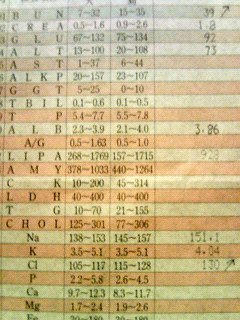 B U N 7~32 15~35 39 ↗
C R E A 0.5~1.6 0.9~2.6 1.8
G L U 67~132 75~134 92
A L T 13~100 20~108 73
A S T 1~37 6~44
A L K P 20~157 23~107
G G T 5~25 0~10
T B I L 0.1~0.6 0.1~0.5
T P 5.4~7.7 5.5~7.8
A L B 2.3~3.9 2.1~4.0 3.86
A/G 0.5~1.63 0.5~1.0
L I P A 268~1769 157~1715 928
A M Y 378~1033 440~1264
C K 10~200 45~314
L D H 40~400 40~400
T G 10~70 21~155
C H O L 125~301 77~306
Na 138~153 145~157 151.1
K 3.5~5.1 3.5~5.1 4.04
Cl 105~117 115~128 130 ↗
P 2.2~5.8 2.6~4.5
Ca 9.7~12.3 8.3~11.7
Mg 1.7~2.4 1.9~2.6
Fe